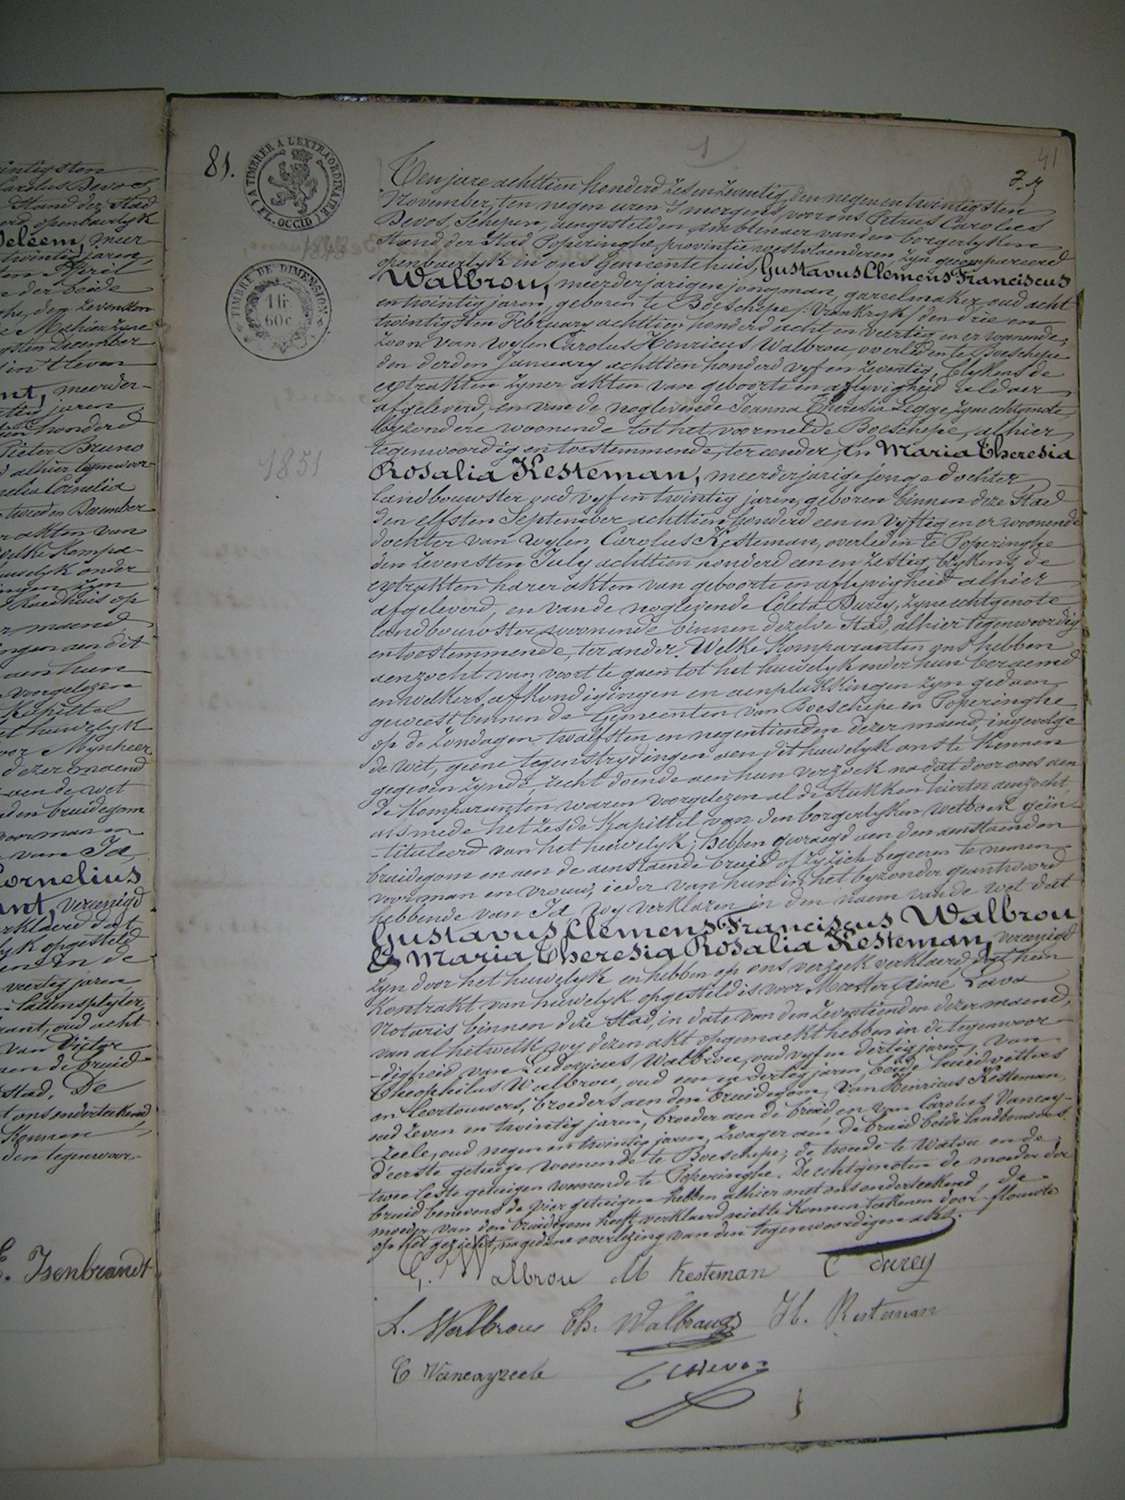 81.
41
TIMBRER A L'EXTRAORDINAIRE
(FL. OCCID.)
TIMBRE DE DIMENSION
1 fr. 60 c
1851
Ten jare achttien honderd zes en zeventig, den negen en twintigsten
November, ten negen uren 's morgens, voor ons Petrus Carolus
Devos, Schepen, aengestelden ambtenaer van den borgerlyken
Stand, der Stad Poperinghe, provintie westvlaenderen, zyn gecompareerd
openbaerlyk in ons Gemeentehuis, Gustavus Clemens Franciscus
Walbrou, meerderjarigen jongman, gareelmaker, oud acht
en twintig jaren, geboren te Boeschepe (Vrankryk) den drie en
twintigsten February achttien honderd acht en veertig en er woonende,
zoon van wylen Carolus Henricus Walbrou, overleden te Boeschepe
den derden January achttien honderd vyf en zeventig, blykens de
extrakten zyner akten van geboorte en aflyvigheid aldaer
afgeleverd, en van de noglevende Joanna Theresia Legge, zyne echtgenote,
byzondere woonende tot het voormelde Boeschepe, alhier
tegenwoordig en toestemmende, ter eender, En Maria Theresia
Rosalia Kesteman, meerderjarige jonge dochter
landbouwster oud vyf en twintig jaren, geboren binnen deze Stad
den elfsten September achttien honderd een en vyftig en er woonende
dochter van wylen Carolus Kesteman, overleden te Poperinghe
den zevensten July achttien honderd een en zestig, blykens de
extrakten harer akten van geboorte en aflyvigheid alhier
afgeleverd, en van de noglevende Coleta Durey, zyne echtgenote
landbouwster, woonende binnen dezelve Stad, alhier tegenwoordig
en toestemmende, ter ander. Welke komparanten ons hebben
aenzocht van voort te gaen tot het huwelyk onder hun beraemd
en welkers afkondigingen en aenplakkingen zyn gedaen
geweest binnen de Gemeenten van Boeschepe en Poperinghe
op de Zondagen twaelfsten en negentienden dezer maend, ingevolge
de wet, geene tegenstrydingen aen dit huwelyk ons te kennen
gegeven zynde, recht doende aen hun verzoek na dat door ons aen
de komparanten waren voorgelezen al de stukken hiertoe aenzocht,
als mede het zesde Kapittel van den borgerlyken wetboek geïn-
-tituleerd van het huwelyk; hebben gevraegd aen den aenstaenden
bruidegom en aen de aenstaende bruid of zy zich begeeren te nemen
voor man en vrouw, ieder van hun in het byzonder geantwoord
hebbende van Ja, wy verklaren in den naem van de wet dat
Gustavus Clemens Franciscus Walbrou
& Maria Theresia Rosalia Kesteman, vereenigd
zyn door het huwelyk en hebben op ons verzoek verklaerd dat hun
kontrakt van huwelyk opgesteld is voor Meester Aimé Lava
Notaris binnen deze Stad, in date van den zeventienden dezer maend,
van al hetwelk wy dezen akt opgemaekt hebben in de tegenwoor-
-digheid van Ludovicus Walbrou, oud vyf en dertig jaren, van
Theophilus Walbrou, oud een en dertig jaren, beide huidvetters
en leertouwers, broeders aen den bruidegom, van Henricus Kesteman,
oud zeven en twintig jaren, broeder aen de bruid, en van Carolus Vancay-
-zeele, oud negen en twintig jaren, zwager aen de bruid beide landbouwers
d'eerste getuige woonende te Boeschepe, de tweede te Watou en de
twee leste getuigen woonende te Poperinghe. De echtgenoten de moeder der
bruid benevens de vier getuigen hebben alhier met ons onderteekend, de
moeder van den bruidegom heeft verklaerd niet te konnen teekenen door flauwte
op het gezicht, na gedane overlezing van den tegenwoordigen akt.
G. Walbrou M Kesteman C durey
L. Walbrou Th. Walbrou H. Kesteman
C Vancayzeele C Devos
E. Isenbrandt